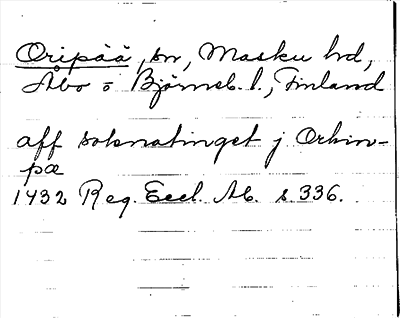 Oripää, sn, Masku hd,
Åbo o Björneb. l., Finland
aff soknatinget j Orkin-
pæ
1432 Reg. Eccl. Ab. s 336.